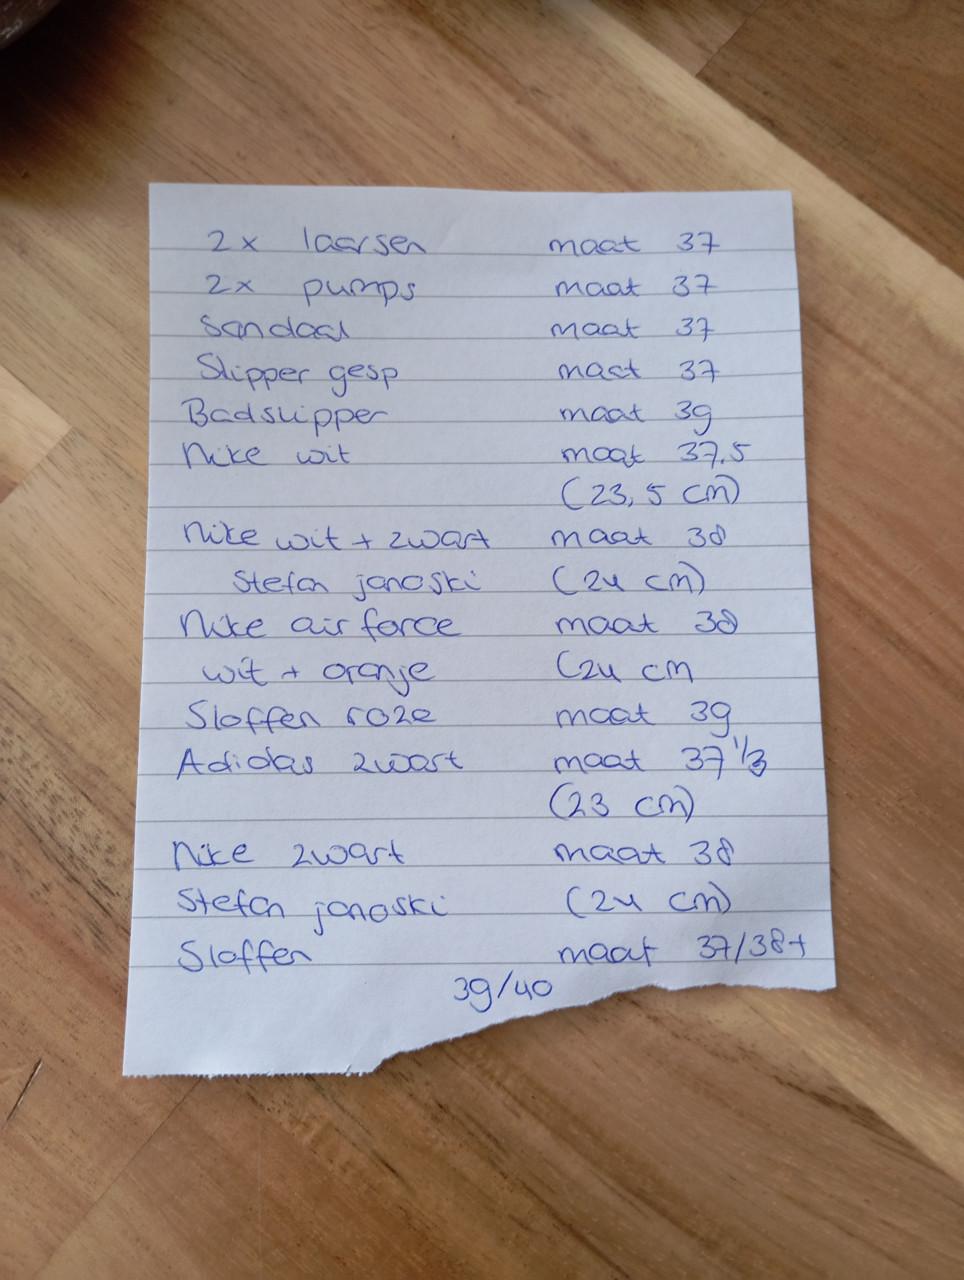 2x laarsen maat 37
2x pumps maat 37
Sandaal maat 37
Slipper gesp maat 37
Badslipper maat 39
Nike wit maat 37,5
(23,5 cm)
Nike wit + zwart maat 38
Stefan janoski (24 cm)
Nike air force maat 38
wit + oranje (24 cm
Sloffen roze maat 39
Adidas zwart maat 37 1/3
(23 cm)
Nike zwart maat 38
Stefan janoski (24 cm)
Sloffen maat 37/38+
39/40